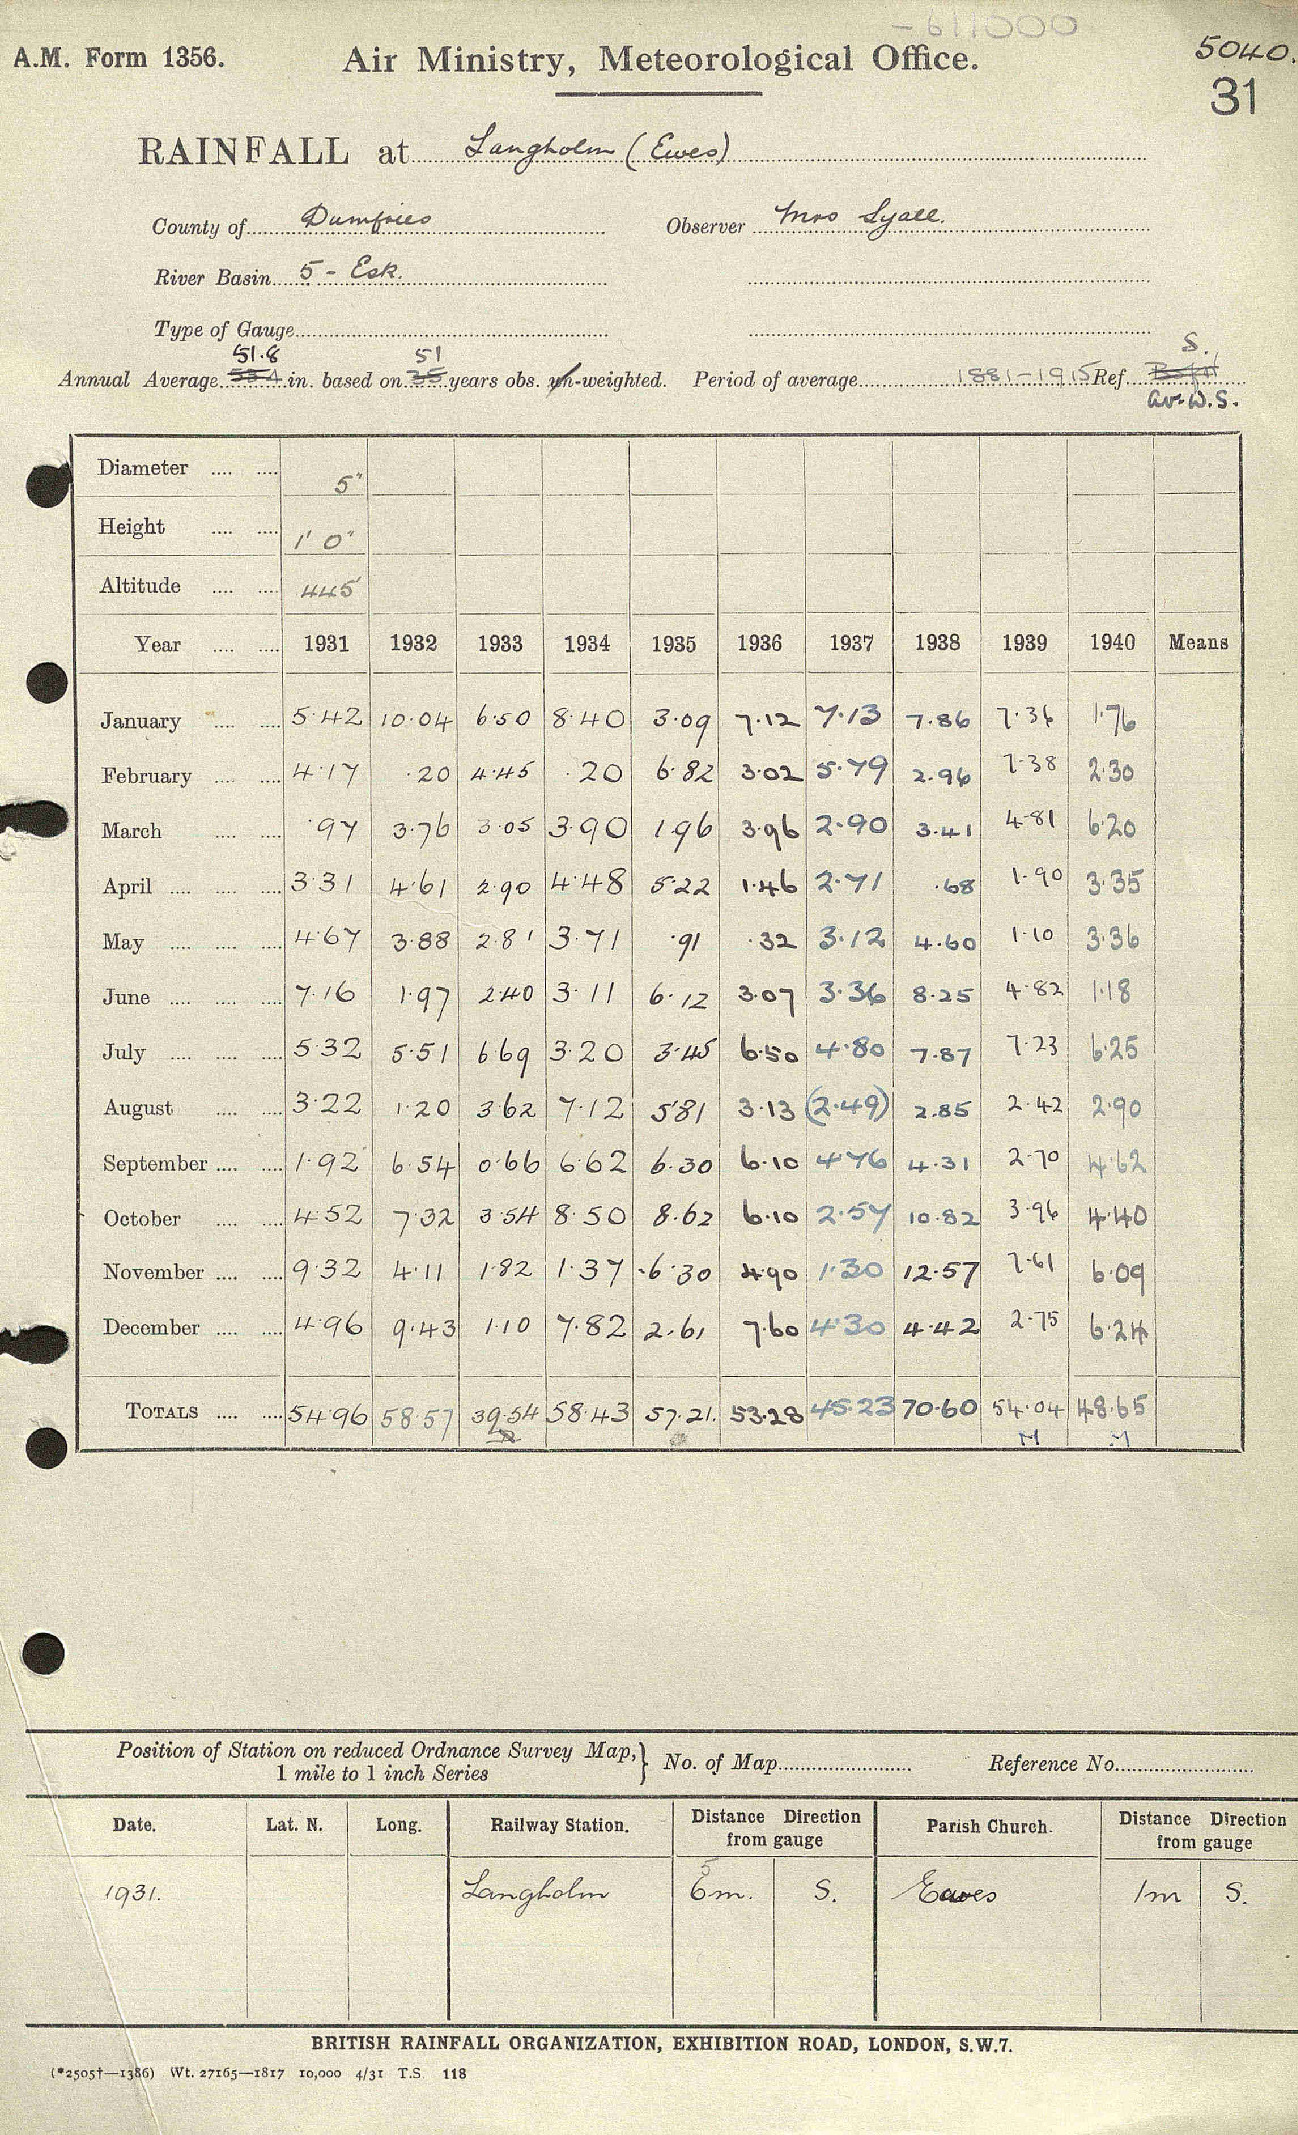 -611000
A.M. Form 1356. Air Ministry, Meteorological Office. 5040.
31
RAINFALL at Langholm (Ewes)
County of Dumfries Observer Mrs Lyall.
River Basin 5 - Esk.
Type of Gauge
51.8 51 S.
Annual Average in. based on 35 years obs. un-weighted. Period of average 1881-1915 Ref
av. W.S.
Diameter 5"
Height 1' 0"
Altitude 445'
Year 1931 1932 1933 1934 1935 1936 1937 1938 1939 1940 Means
January 5.42 10.04 6.50 8.40 3.09 7.12 7.13 7.86 7.36 1.76
February 4.17 .20 4.45 .20 6.82 3.02 5.79 2.96 7.38 2.30
March .97 3.76 3.05 3.90 1.96 3.96 2.90 3.41 4.81 6.20
April 3.31 4.61 2.90 4.48 5.22 1.46 2.71 .68 1.90 3.35
May 4.67 3.88 2.81 3.71 .91 .32 3.12 4.60 1.10 3.36
June 7.16 1.97 2.40 3.11 6.12 3.07 3.36 8.25 4.82 1.18
July 5.32 5.51 6.69 3.20 3.45 6.50 4.80 7.87 7.23 6.25
August 3.22 1.20 3.62 7.12 5.81 3.13 (2.49) 2.85 2.42 2.90
September 1.92 6.54 0.66 6.62 6.30 6.10 4.76 4.31 2.70 4.62
October 4.52 7.32 3.54 8.50 8.62 6.10 2.57 10.82 3.96 4.40
November 9.32 4.11 1.82 1.37 6.30 4.90 1.30 12.57 7.61 6.09
December 4.96 9.43 1.10 7.82 2.61 7.60 4.30 4.42 2.75 6.24
TOTALS 54.96 58.57 39.54 58.43 57.21. 53.28 45.23 70.60 54.04 48.65
M M
Position of Station on reduced Ordnance Survey Map, 1 mile to 1 inch Series } No. of Map Reference No.
Date. Lat. N. Long. Railway Station. Distance Direction from gauge Parish Church. Distance Direction from gauge
5
1931. Langholm 6m. S. Ewes 1m S.
BRITISH RAINFALL ORGANIZATION, EXHIBITION ROAD, LONDON, S.W.7.
(*2505†—1386) Wt. 27165—1817 10,000 4/31 T.S. 118